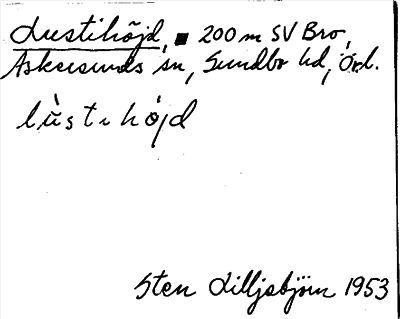 Lustihöjd, ■ 200 m SV Bro,
Askersunds sn, Sundbo hd, Örl.
lùstihö̀jd
Sten Lilljebjörn 1953